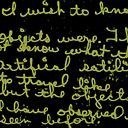 I wish to know
objects were. Th
or show what
artifical satill
to travel like
but the object
I have observed.
seen before.